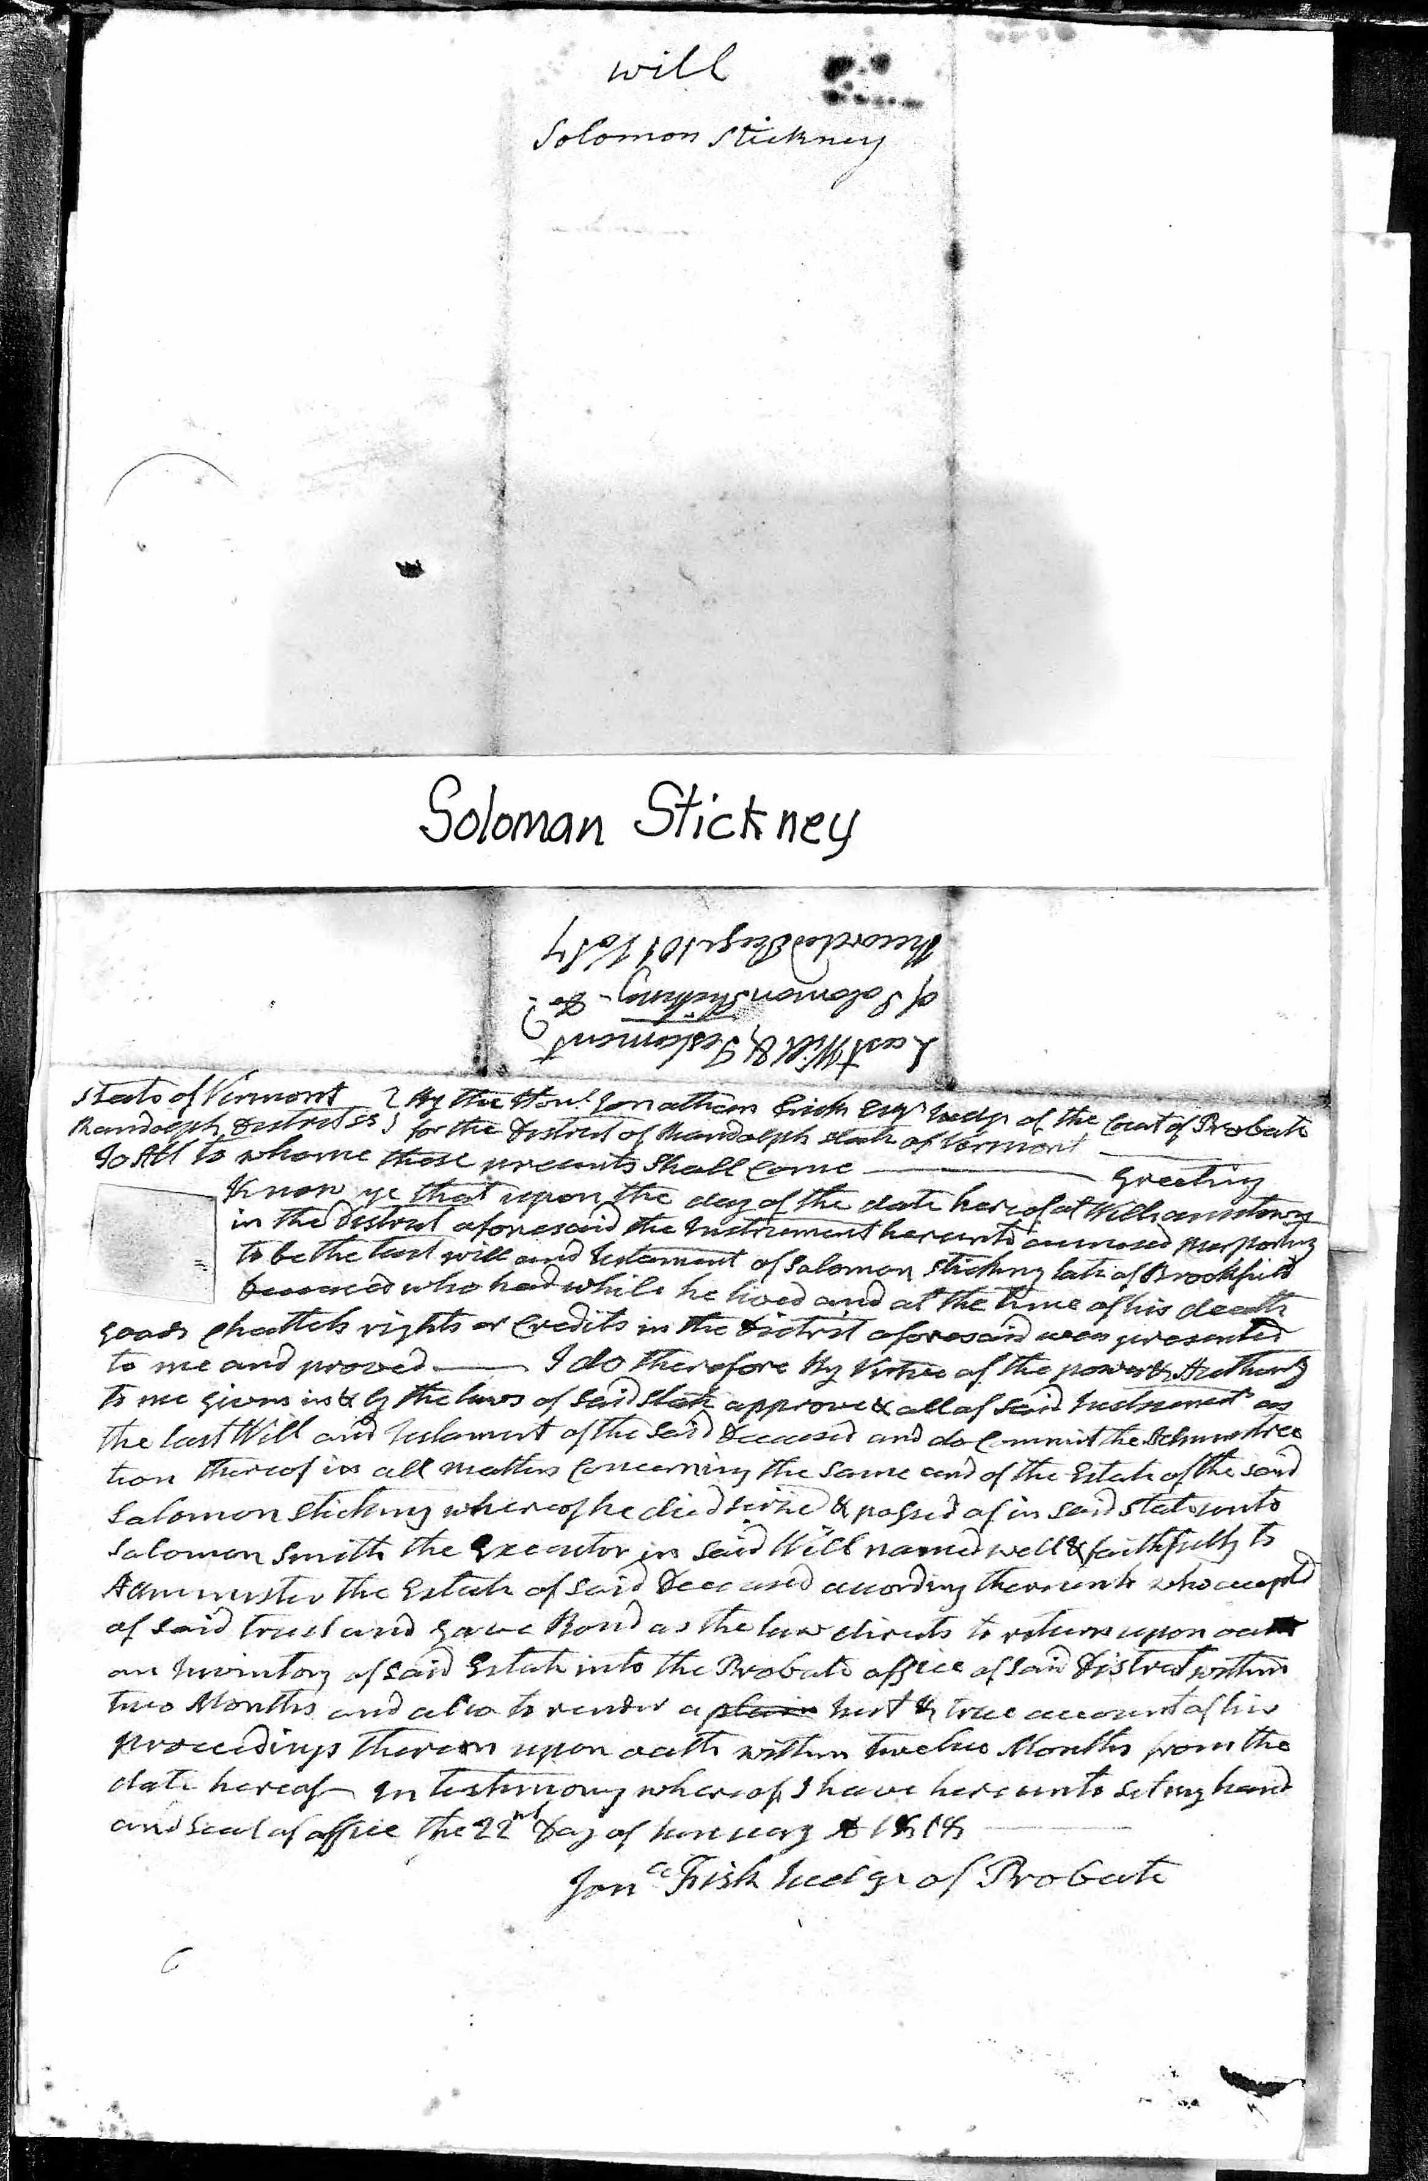 will
Solomon Stickney
Soloman Stickney
Last Will & Testament
of Solomon Stickney - De.d
Recorded Page 101 Vol 7
State of Vermont } By the Honl. Jonathan Fisk Esqr Judge of the Court of Probate
Randolph District ss } for the District of Randolph State of Vermont
To All to whome these presents Shall Come ——— Greeting
Know ye that upon the day of the date hereof at Williamstown
in the District aforesaid the Instrument hereunto annexed purporting
to be the last will and testament of Solomon Stickney late of Brookfield
Deceased who had while he lived and at the time of his death
goods Chattels rights or Credits in the District aforesaid was presented
to me and proved —— I do therefore By Virtue of the power & Authority
to me given in & by the laws of Said State approve & all of Said Instrument as
the last Will and Testament of the Said Deceased and do Commit the Adminstra
tion thereof in all matters Concerning the Same and of the Estate of the said
Solomon Stickney whereof he died seized & possed of in said State unto
Solomon Smith the Executor in said Will named well & faithfully to
Administer the Estate of Said Deceased according thereunto who accepted
of said trust and gave Bond as the law directs to return upon oath
an Inventory of said Estate into the Probate office of said District within
two Months and also to render a plain Just & true account of his
proceedings thereon upon oath within twelve Months from the
date hereof— In testimony whereof I have hereunto set my hand
and Seal of office the 22nd Day of January AD 1818 ———
Jona Fisk Judge of Probate